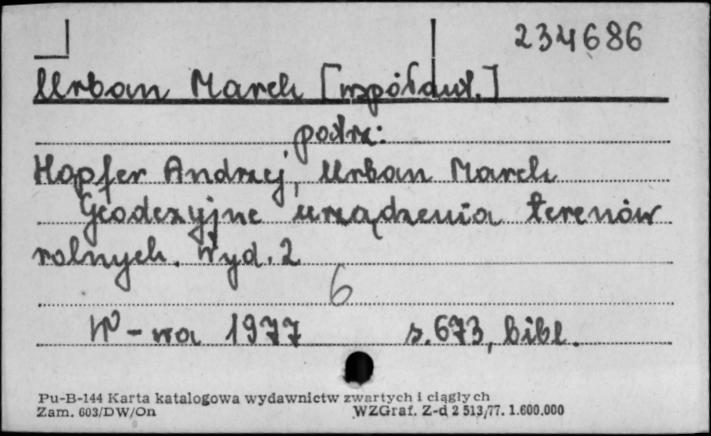 234686
Urban Marek [współaut.]
patrz:
Hopfer Andrzej, Urban Marek
Geodezyjne urządzenia terenów
rolnych. Wyd. 2
6
W-wa 1977 s. 673, bibl.
Pu-B-144 Karta katalogowa wydawnictw zwartych i ciągłych
Zam. 603/DW/On WZGraf. Z-d 2 513/77. 1.600.000